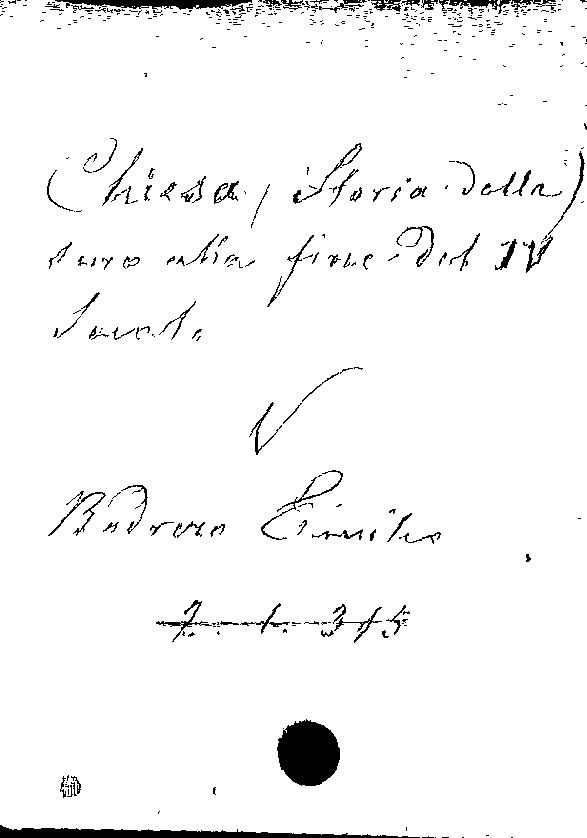 (Chiesa, Storia della)
sino alla fine del IV
Secol.
V
Bodrero Emilio
2. 1. 315